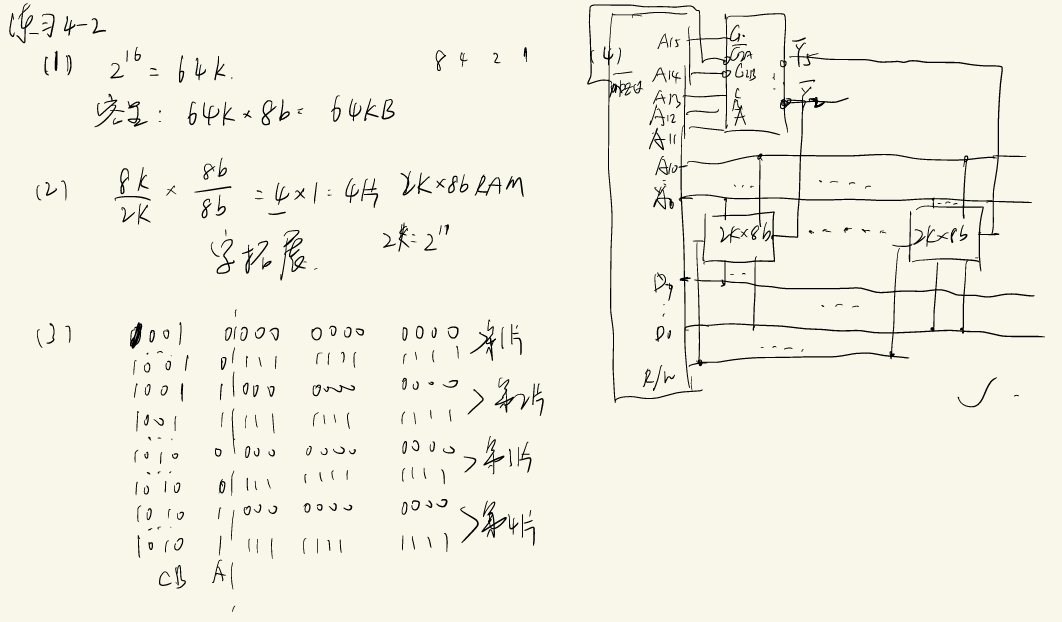 练习4-2
(1) 2^16 = 64K.
8 4 2 1
容量: 64K×8b= 64KB
(2) 8K/2K × 8b/8b = 4×1=4片 2K×8b RAM
字拓展. 2K=2^11
(3) 1001 0000 0000 0000 第1片
...
1001 0111 1111 1111
1001 1000 0000 0000 >第2片
1001 1111 1111 1111
...
1010 0000 0000 0000 >第1片
...
1010 0111 1111 1111
1010 1000 0000 0000 >第4片
...
1010 1111 1111 1111
CB A
(4)
A15 G1
G2A Y5
A14 G2B
A13 C
A12 B Y2
A11 A
A10
... ....
A0
2K×8b ...... 2K×8b
D7
...
D0
....
R/W